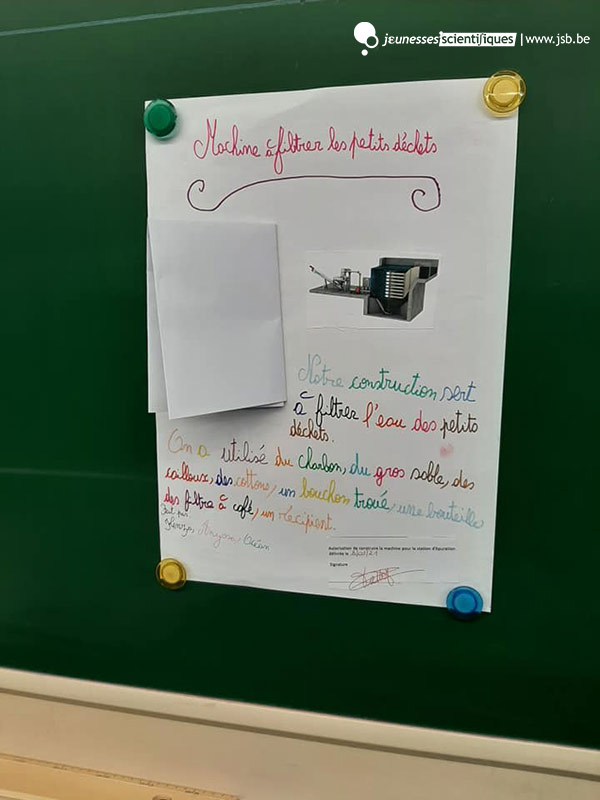 jeunesses scientifiques | www.jsb.be
Machine à filtrer les petits déchets
Notre construction sert
à filtrer l'eau des petits
déchets.
On a utilisé du charbon, du gros sable, des
cailloux, des cottons, un bouchon troué, une bouteille
des filtre à café, un récipient.
Fait par:
Kenza,
Autorisation de construire la machine pour la station d'épuration
délivrée le
Signature